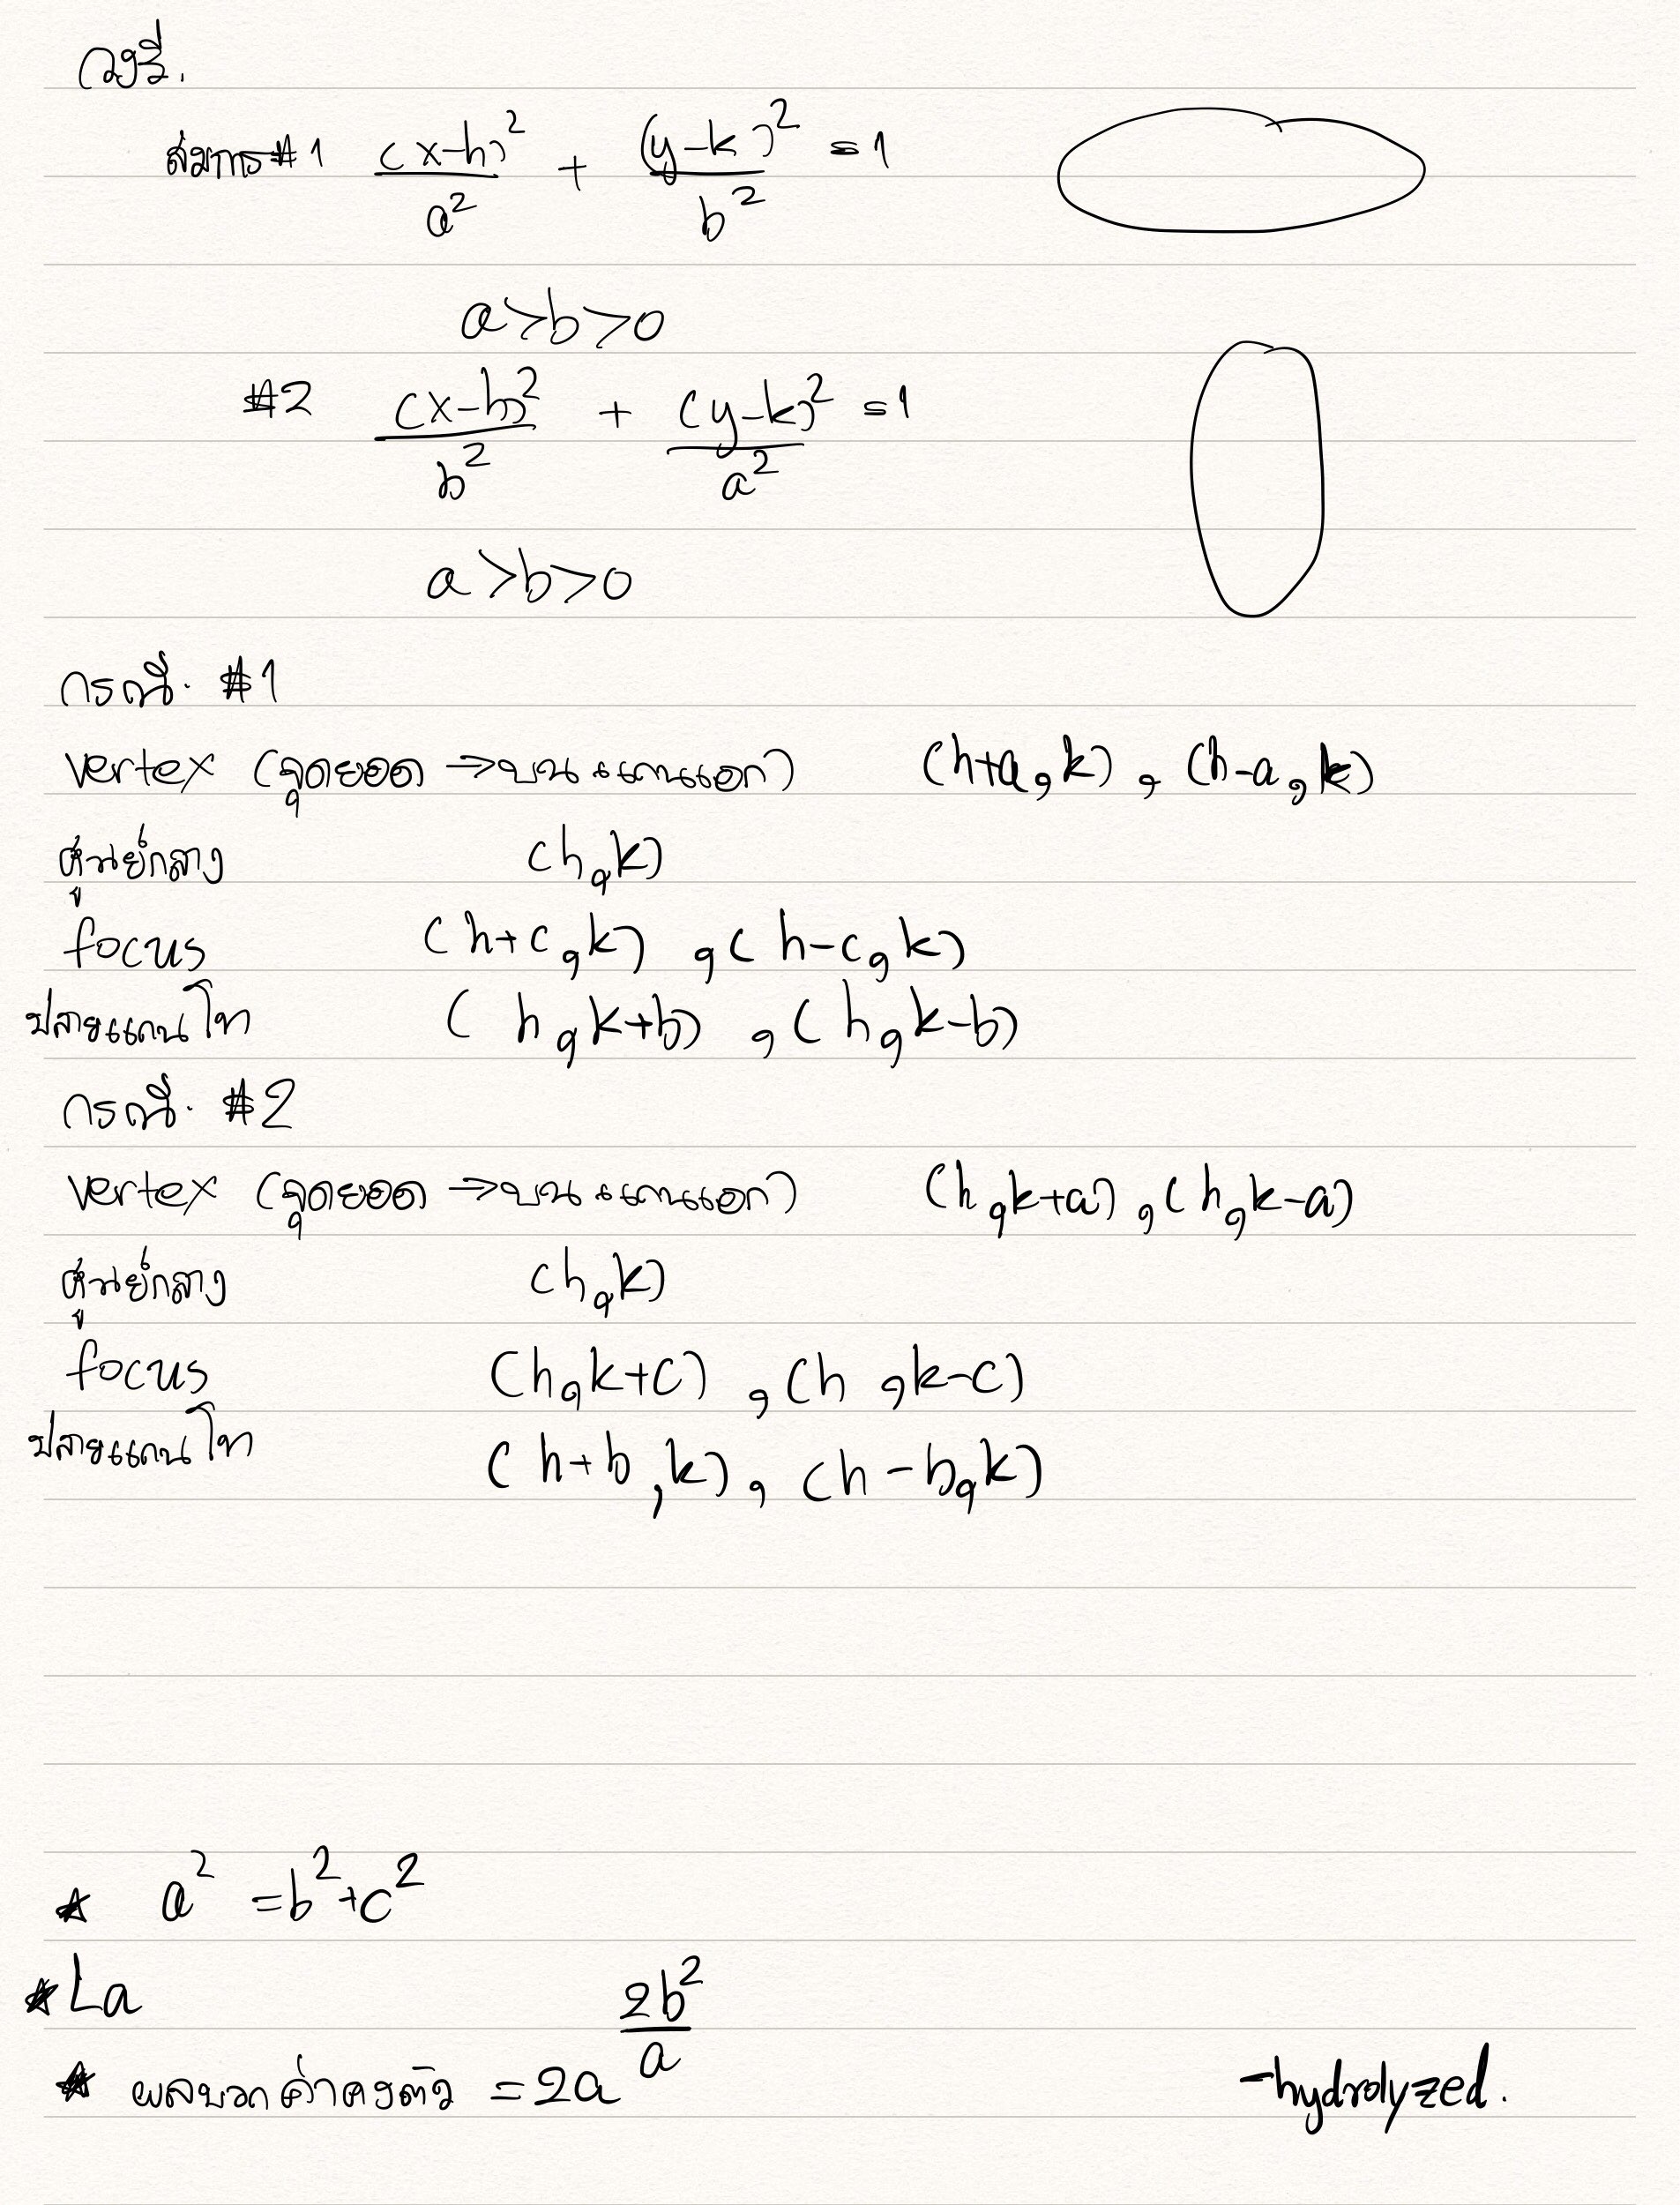 วงรี.
สมการ#1 (x-h)²/a² + (y-k)²/b² = 1
a>b>0
#2 (x-h)²/b² + (y-k)²/a² = 1
a>b>0
กรณี. #1
vertex (จุดยอด →บนแกนเอก) (h+a,k) , (h-a,k)
ศูนย์กลาง (h,k)
focus (h+c,k) ,(h-c,k)
ปลายแกนโท (h,k+b) ,(h,k-b)
กรณี. #2
vertex (จุดยอด →บนแกนเอก) (h,k+a) ,(h,k-a)
ศูนย์กลาง (h,k)
focus (h,k+c) ,(h,k-c)
ปลายแกนโท (h+b,k), (h-b,k)
★ a² =b²+c²
★La 2b²/a
★ ผลบวกค่าคงตัว =2a
-hydrolyzed.